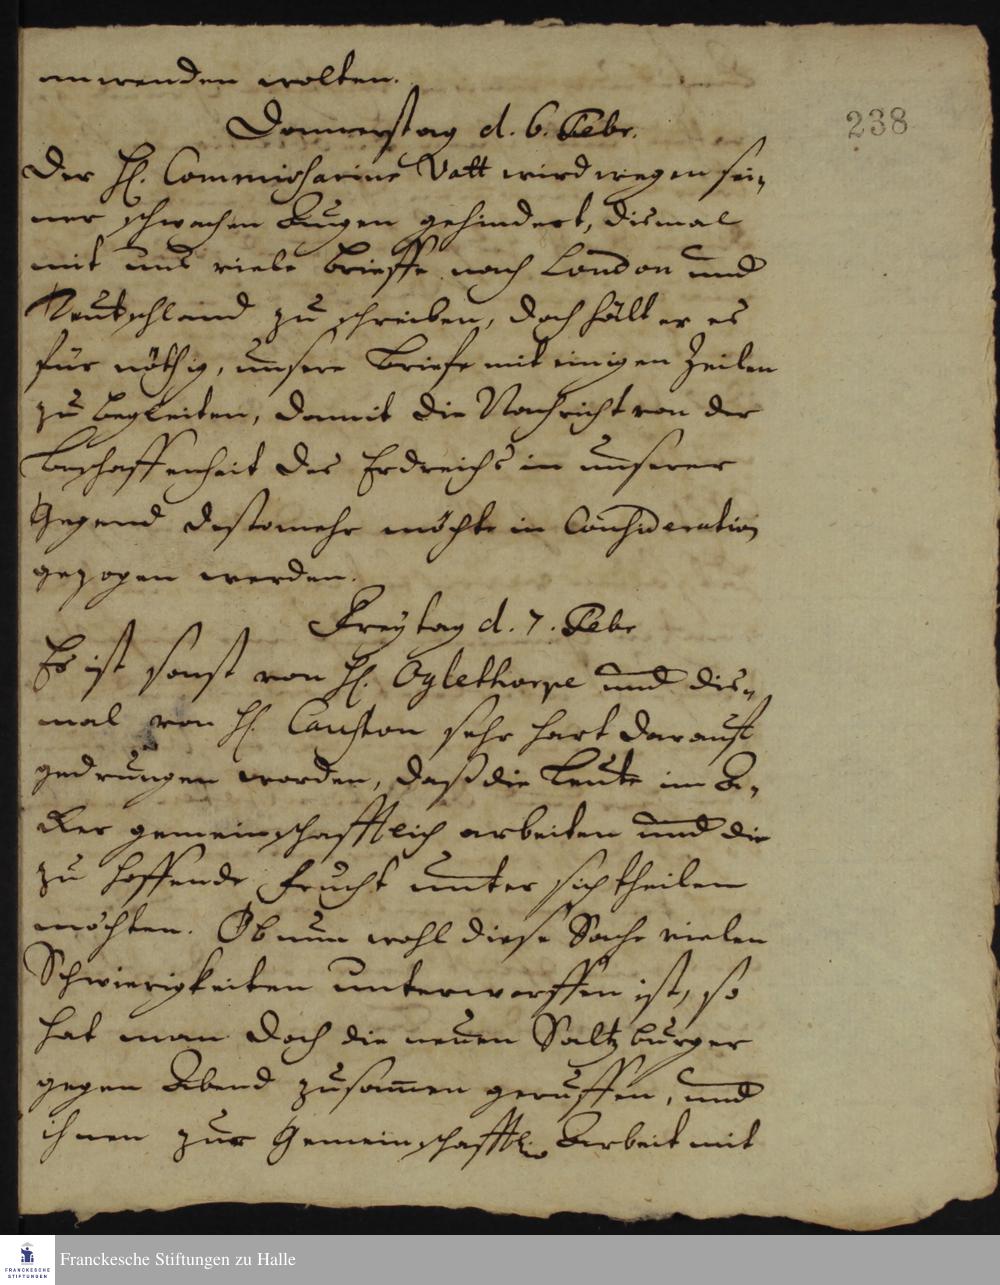 anwenden wolten.
Donnerstag d. 6. Febr.
238
Der H. Commissarius Vatt wird wegen sei-
ner schwachen Augen gehindert, dismal
mit uns viele Brieffe nach London und
Teutschland zu schreiben, doch hält er es
für nöthig, unsere Briefe mit einigen Zeilen
zu begleiten, damit die Nachricht von der
Beschaffenheit des Erdreichs in unserer
Gegend destomehr möchte in Consideration
gezogen werden.
Freytag d. 7. Febr
Es ist sonst von H. Oglethorpe und dis-
mal von H. Causton sehr hart darauf
gedrungen worden, daß die Leute im A-
cker gemeinschafftlich arbeiten und die
zu hoffende Frucht unter sich theilen
möchten. Ob nun wohl diese Sache vielen
Schwierigkeiten unterworffen ist, so
hat man doch die neuen Saltzburger
gegen Abend zusammen geruffen, und
ihnen zur Gemeinschafftl. Arbeit mit
FRANCKESCHE STIFTUNGEN
Franckesche Stiftungen zu Halle